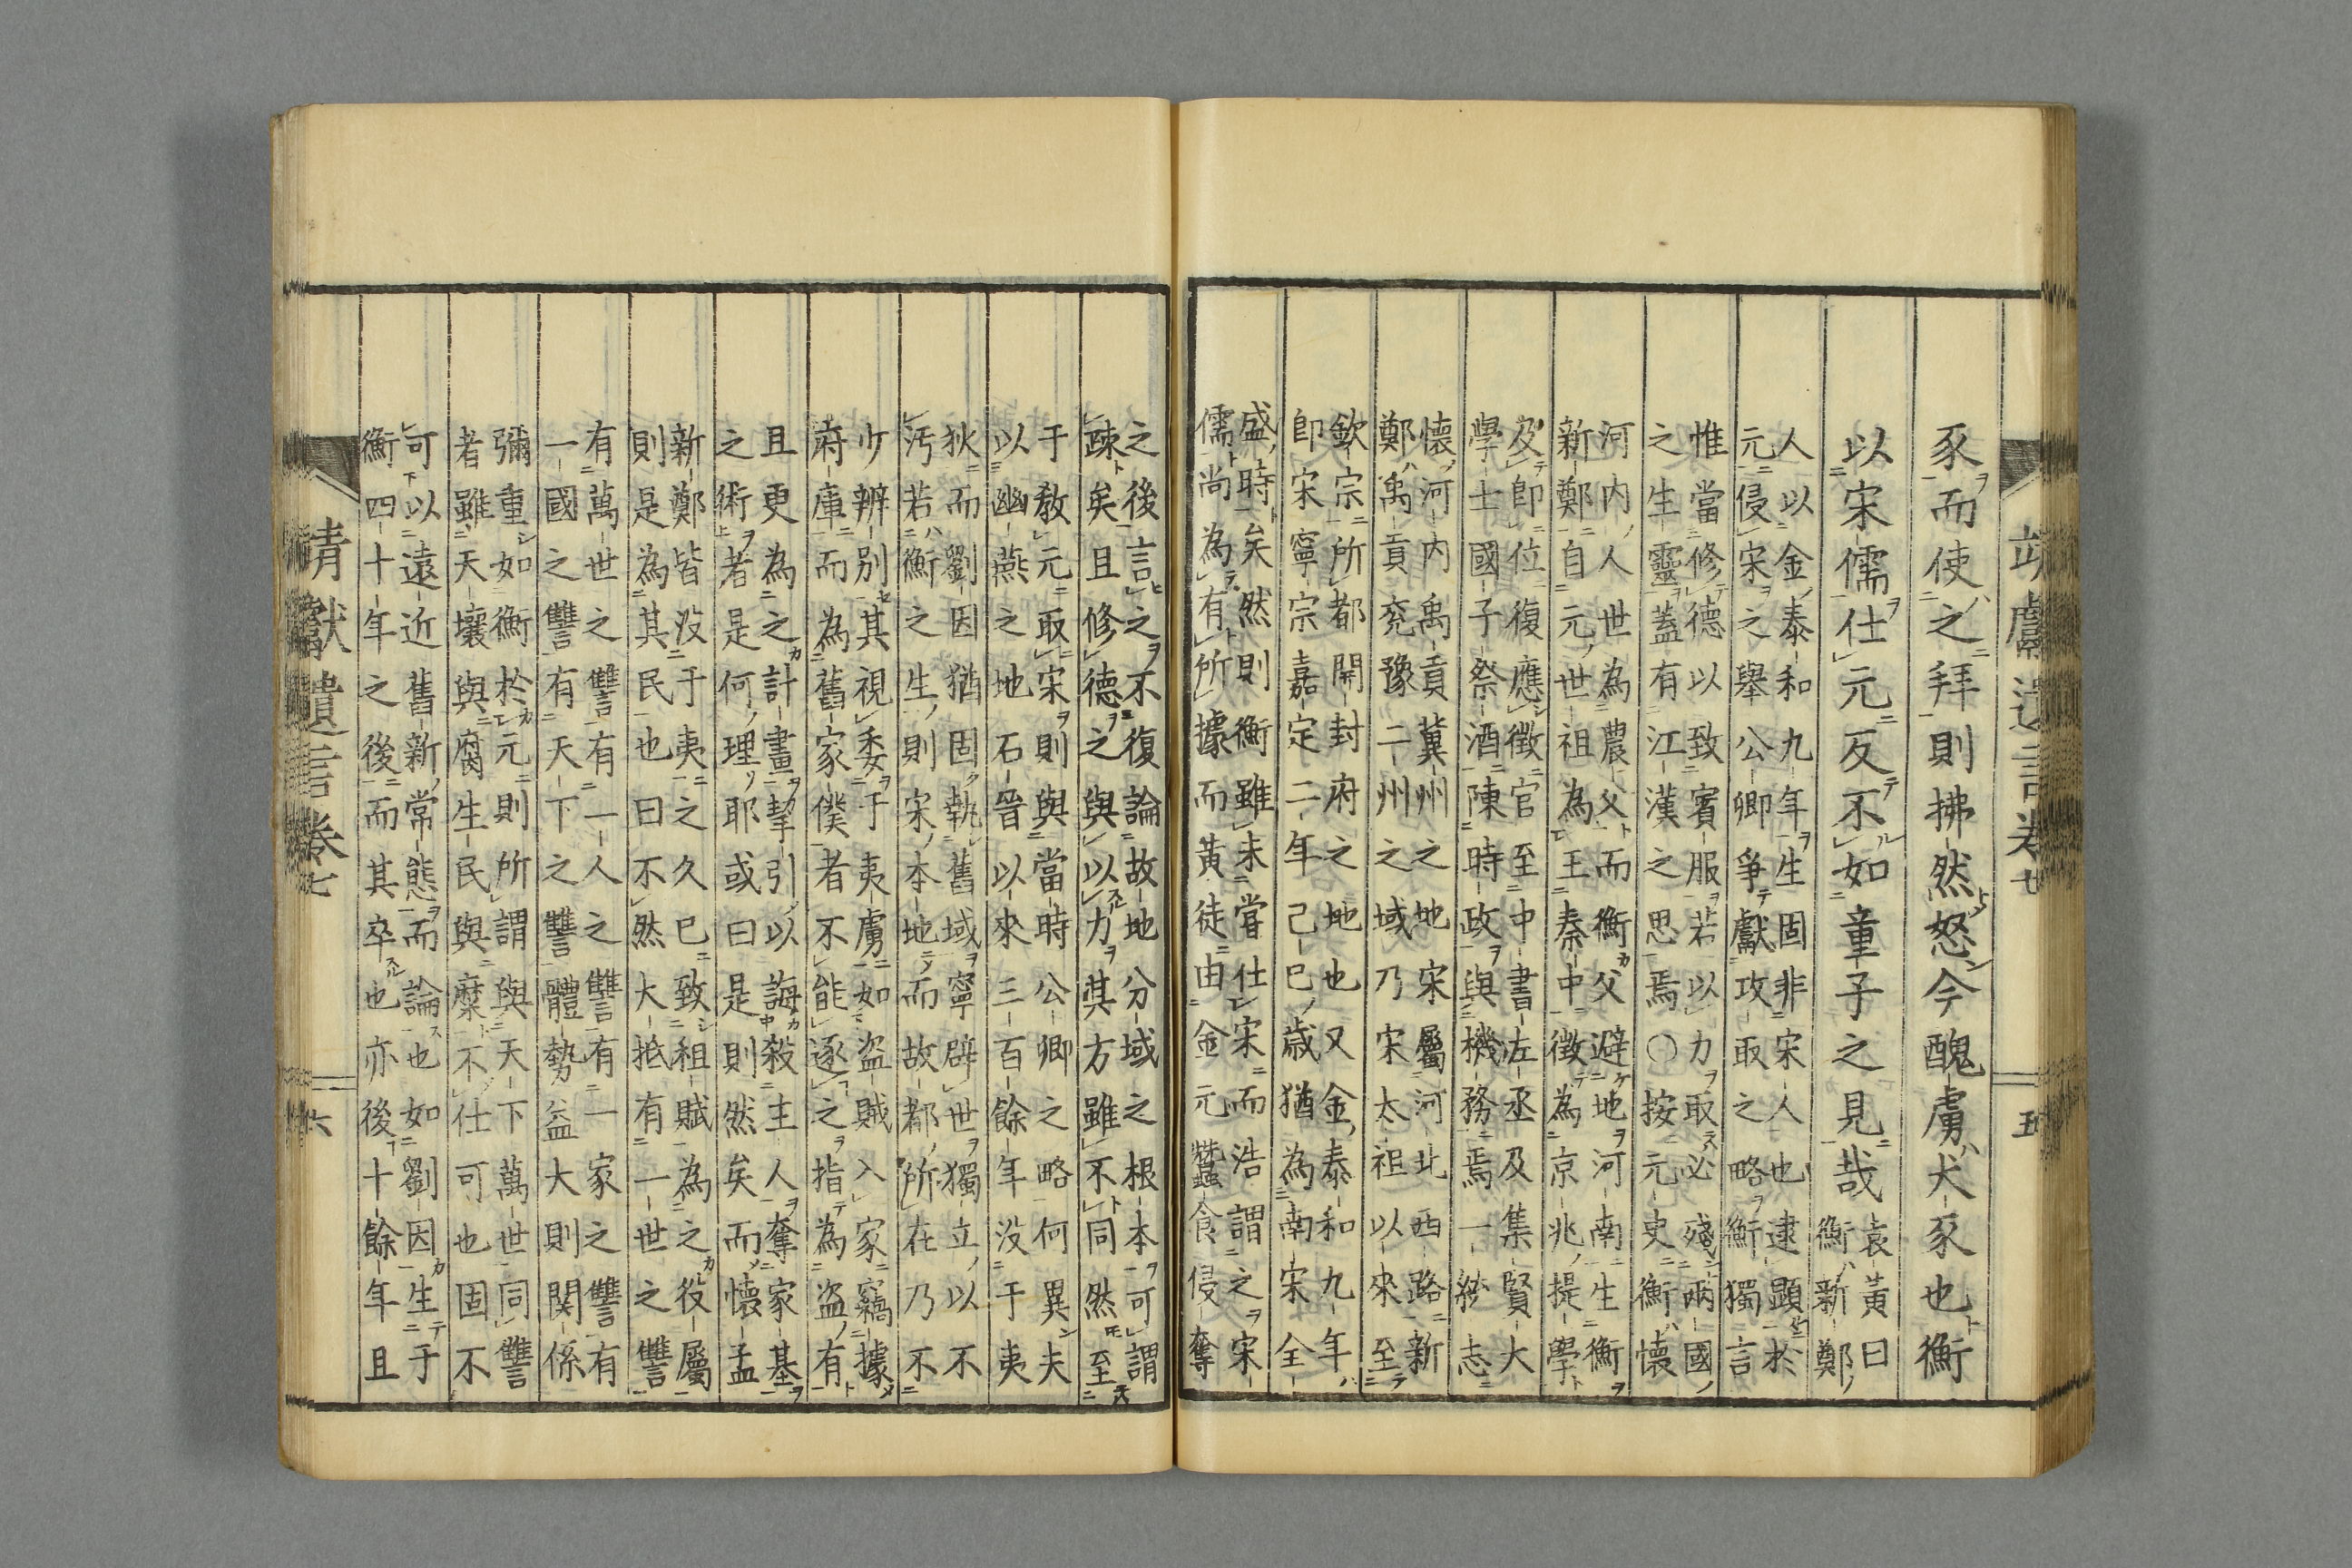 靖獻遺言卷七
五
豕而使之拜則拂然怒今醜虜犬豕也衡
以宋儒仕元反不如童子之見哉
袁黃曰
衡新鄭
人以金泰和九年生固非宋人也逮顯於
元侵宋之舉公卿爭獻攻取之略衡獨言
惟當修德以致賓服若以力取必殘兩國
之生靈蓋有江漢之思焉○按元史衡懷
河內人世為農父而衡父避地河南生衡
新鄭自元世祖為王秦中徵為京兆提學
及即位復應徵官至中書左丞及集賢大
學士國子祭酒陳時政與機務焉一統志
懷河內禹貢冀州之地宋屬河北西路新
鄭禹貢兗豫二州之域乃宋太祖以來至
欽宗所都開封府之地也又金泰和九年
即宋寧宗嘉定二年己巳歲猶為南宋全
盛時矣然則衡雖未嘗仕宋而浩謂之宋
儒尚為有所據而黃徒由金元蠶食侵奪
之後言之不復論故地分域之根本可謂
疎矣且修德之與以力其方雖不同然至
于教元取宋則與當時公卿之略何異夫
以幽燕之地石晉以來三百餘年没于夷
狄而劉因猶固執舊域寧辟世獨立以不
汚若衡之生則宋本地而故都所在乃不
少辨別其視委于夷虜如盜賊入家竊據
府庫而為舊家僕者不能逐之指為盜有
且更為之計畫挈引以誨殺主人奪家基
之術者是何理耶或曰是則然矣而懷孟
新鄭皆没于夷之久已致租賦為之役屬
則是為其民也曰不然大抵有一世之讐
有萬世之讐有一人之讐有一家之讐有
一國之讐有天下之讐體勢益大則関係
彌重如衡於元則所謂與天下萬世同讐
者雖天壤與腐生民與糜不仕可也固不
可以遠近舊新常態而論也如劉因生于
衡四十年之後而其卒也亦後十餘年且
靖獻遺言卷七
六